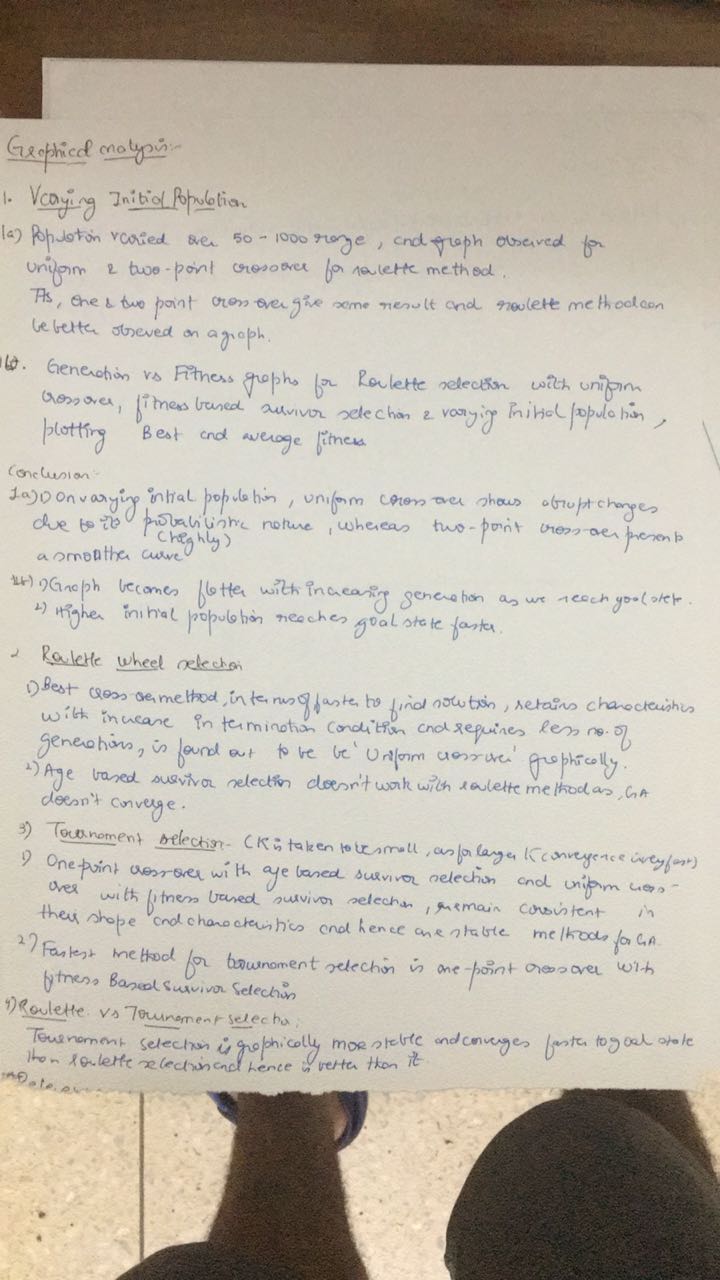 Graphical analysis:-
1. Varying Initial Population
1a) Population varied over 50-1000 range, and graph observed for
uniform & two-point crossover for roulette method.
As, one & two point cross over give same result and roulette method can
be better observed on a graph.
1b). Generation vs Fitness graphs for Roulette selection with uniform
crossover, fitness based survivor selection & varying initial population,
plotting Best and average fitness
Conclusion:-
1a) 1) On varying initial population, uniform cross over shows abrupt changes
due to its probabilistic nature, whereas two-point cross-over presents
(highly)
a smoother curve
1b) 1) Graph becomes flatter with increasing generation as we reach goal state.
2) Higher initial population reaches goal state faster.
2 Roulette wheel selection
1) Best cross over method, in terms of faster to find solution, retains characteristics
with increase in termination condition and requires less no. of
generations, is found out to be be 'Uniform crossover' graphically.
2) Age based survivor selection doesn't work with roulette method as, GA
doesn't converge.
3) Tournament selection - (K is taken to be small, as for larger K convergence is very fast)
1) One-point cross-over with age based survivor selection and uniform cross-
over with fitness based survivor selection, remain consistent in
their shape and characteristics and hence are stable methods for GA.
2) Fastest method for tournament selection is one-point crossover with
fitness Based Survivor Selection
4) Roulette vs Tournament selection:
Tournament selection is graphically more stable and converges faster to goal state
than roulette selection and hence is better than it.